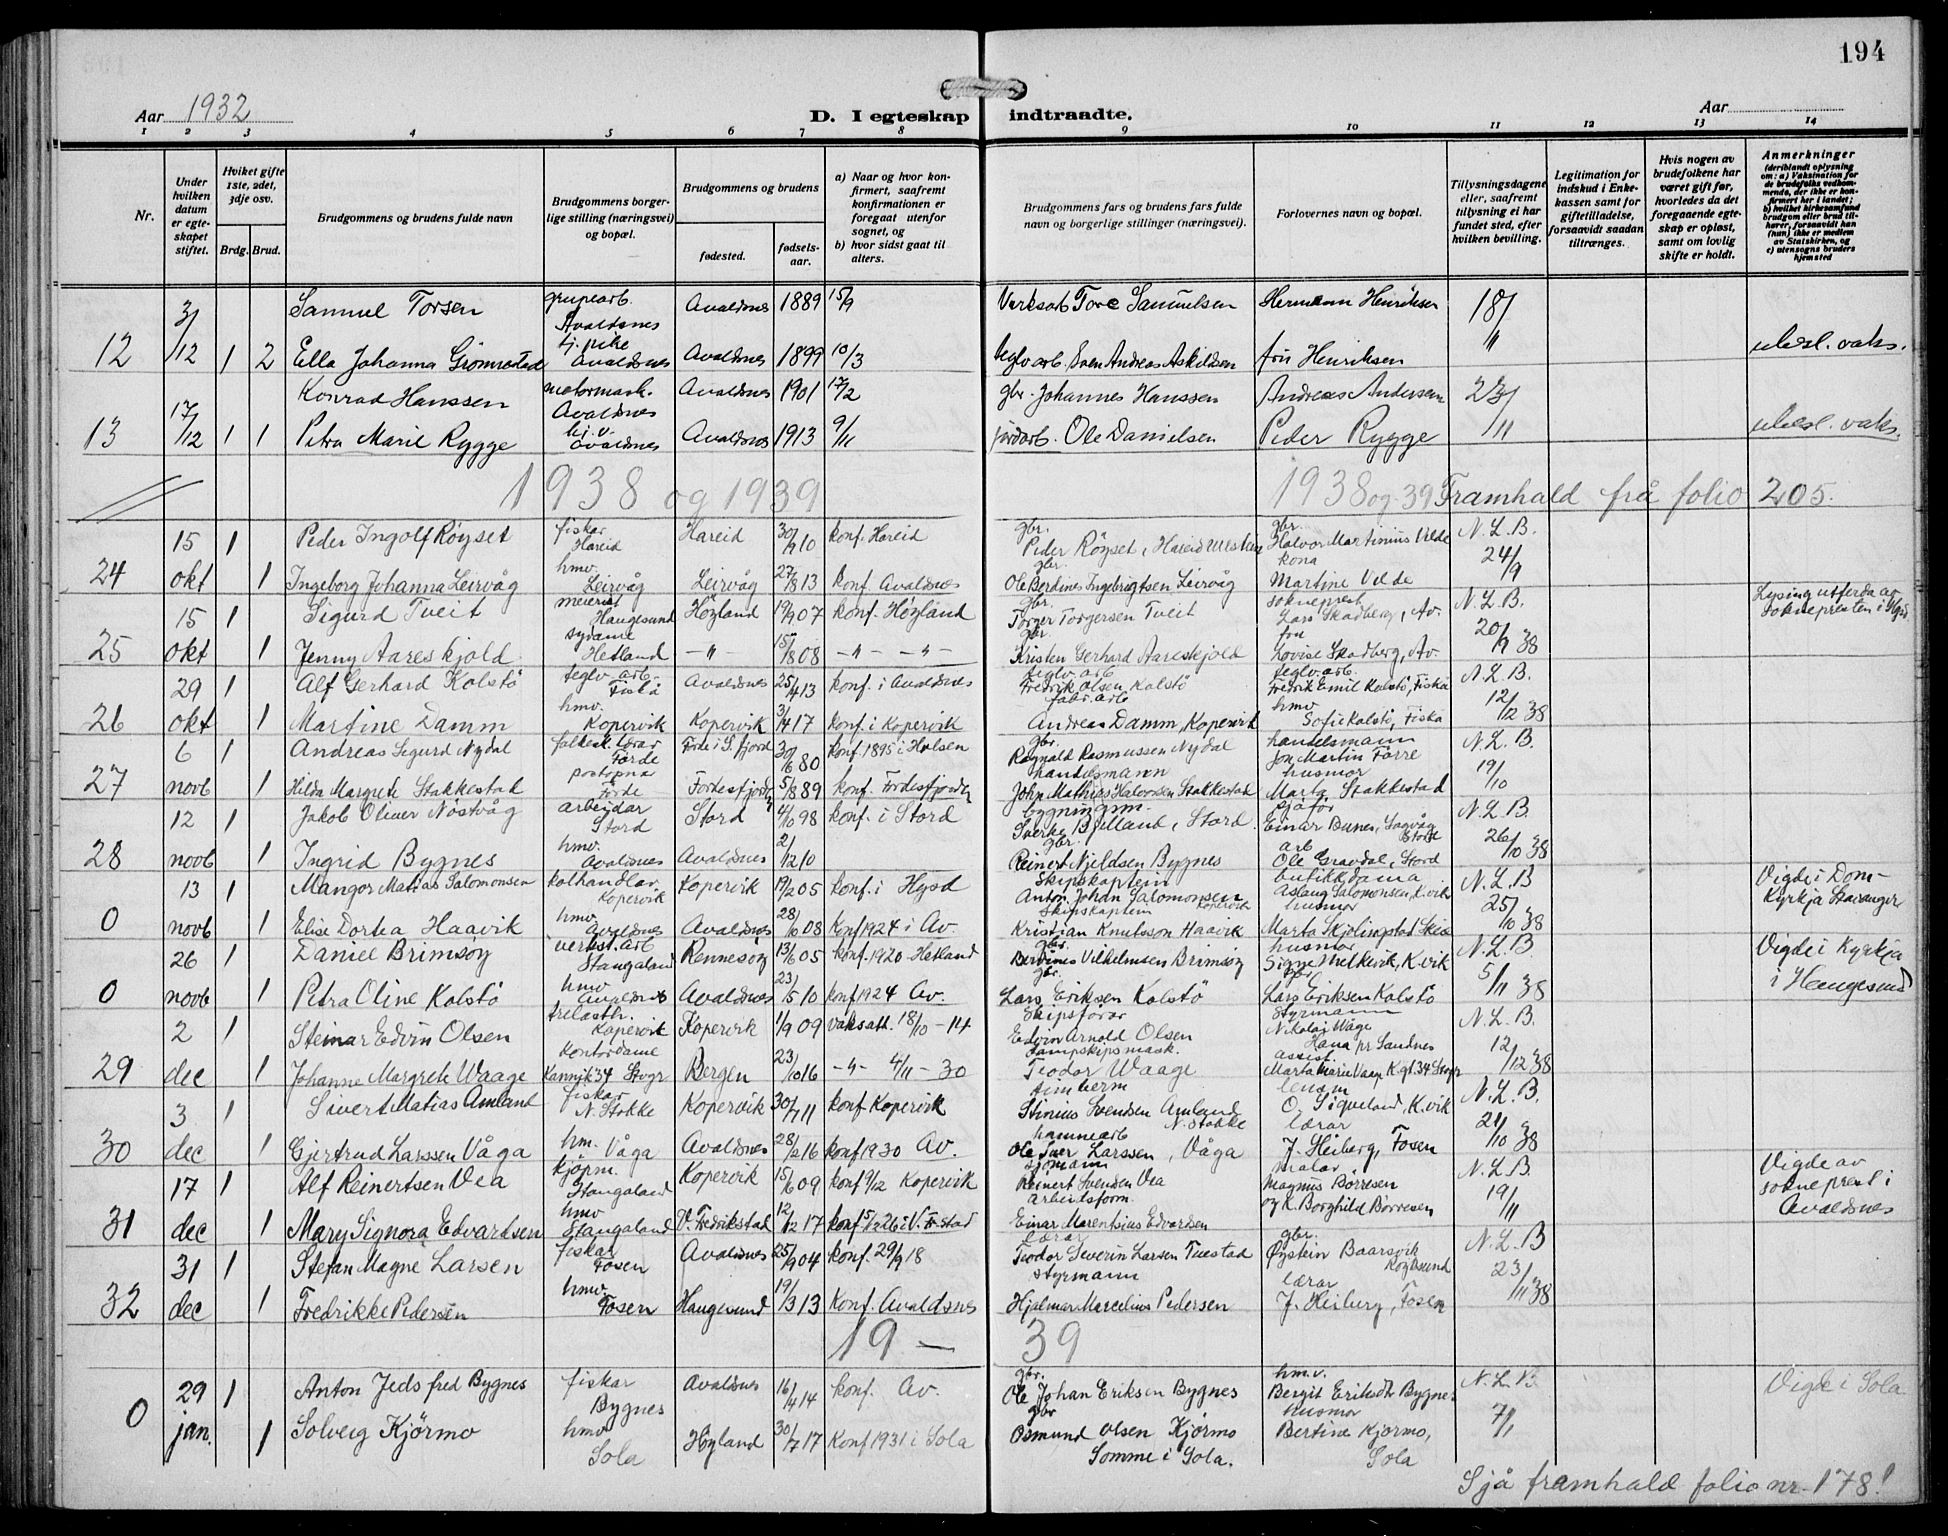 194
Aar 1932
D. I egteskap indtraadte.
Aar
1 2 3 4 5 6 7 8 9 10 11 12 13 14
Nr.
Under hvilken datum er egteskapet stiftet.
Hviket gifte 1ste, 2det, 3dje osv.
Brdg. Brud.
Brudgommens og brudens fulde navn
Brudgommens borgerlige stilling (næringsvei) og bopæl.
Brudgommens og brudens
fødested.
fødselsaar.
a) Naar og hvor konfirmert, saafremt konfirmationen er foregaat utenfor sognet, og
b) hvor sidst gaat til alters.
Brudgommens fars og brudens fars fulde navn og borgerlige stillinger (næringsvei).
Forlovernes navn og bopæl.
Tillysningsdagene eller, saafremt tillysning ei har fundet sted, efter hvilken bevilling.
Legitimation for indskud i Enkekassen samt for giftetilladelse, forsaavidt saadan tiltrænges.
Hvis nogen av brudefolkene har været gift før, hvorledes da det foregaaende egteskap er opløst, samt om lovlig skifte er holdt.
Anmerkninger (deriblandt oplysning om: a) Vaksination for de brudefolks vedkommende, der ikke er konfirmert her i landet; b) hvilket kirkesamfund brudgom eller brud tilhører, forsaavidt han (hun) ikke er medlem av Statskirken, og c) utensogns bruders hjemsted
3/ Samuel Torsen grubearb. Avaldsnes Avaldsnes 1889 15/9 Verksarb Tore Samuelsen Hermann Henriksen 18/
12 /12 1 2 Ella Johanna Grönnestad tj. pike Avaldsnes Avaldsnes 1899 10/3 teglv arb. Sven Andreas Askildsen fru Henriksen 11 ubesl. vaks.
Konrad Hanssen motormask. Avaldsnes Avaldsnes 1901 17/2 gbr. Johannes Hanssen Andreas Andersen 23/
13 17/12 1 1 Petra Marie Rygge Avaldsnes Avaldsnes 1913 9/11 jordarb. Ole Danielsen Peder Rygge /11 ubesl. vaks.
1938 og 1939 1938 og 39 Framhald frå folio 205.
15 1 Peder Ingolf Röyset fiskar Hareid Hareid 30/9 10 konf. Hareid gbr. Peder Röyset, Hareid gbr. Halvor Martinius Velde N. L. B.
24 okt 1 Ingeborg Johanna Leirvåg hmv. Leirvåg Leirvåg 27/8 13 konf. Avaldsnes gbr. Ole Berdines Ingebrigtsen Leirvåg kona Martine Velde 24/9
15 1 Sigurd Tveit meierist Haugesund Höyland 19/9 07 konf. Höyland gbr. Torger Torgersen Tveit sokneprest Lars Skadberg, Av. N. L. B. Lysing utferda av soknepresten i Hgsd
25 okt 1 Jenny Aareskjold sydame Hetland -"- 15/8 08 -"- -"- gbr. Kristen Gerhard Aareskjold fru Lovise Skadberg, Av. 20/9 38
29 1 Alf Gerhard Kolstö teglv. arb. Fiskå Avaldsnes 25/4 13 konf. i Avaldsnes teglv. arb. Fredrik Olsen Kolstö teglv. arb. Fredrik Emil Kolstö, Fiskå N. L. B.
26 okt 1 Martine Damm hmv. Kopervik Kopervik 3/4 17 konf. i Kopervik fabr. arb Andreas Damm, Kopervik hmv Sofie Kolstö, Fiskå 12/12 38
6 1 Andreas Segurd Nydal folkesk. lærar Förde Förde i S. fjord 30/6 80 konf. 1895 i Holsen gbr. Ragnald Rasmussen Nydal handelsmann Jon Martin Förre N. L. B.
27 novb 1 Hilda Margrete Stakkestad postopnar Förde Fördesfjorden 5/8 89 konf. Fördesfjorden handelsmann John Mathias Halvorsen Stakkestad husmor Marta Stakkestad 19/10
12 1 Jakob Oliver Nöstvåg arbeidar Stord Stord 4/6 98 konf. i Stord bygningsm. Sverke Bjelland, Stord sjåför Einar Bunes, Sagvåg Stord N. L. B.
28 novb 1 Ingrid Bygnes hmv. Avaldsnes Avaldsnes 2/12 10 gbr. Reinert Njeldsen Bygnes arb Ole Gravdal, Stord 26/10 38
13 1 Mangor Matias Salomonsen kolhandlar Kopervik Kopervik 19/2 05 konf. i Hgsd Skipskaptein Anton Johan Salomonsen Kopervik butikkdama Aslaug Salomonsen, K.vik N. L. B Vigde i Domkyrkja Stavanger
0 novb 1 Elise Dortea Haavik hmv. Avaldsnes Avaldsnes 28/6 08 Konf 1924 i Av. Skipskaptein Kristian Knutsson Haavik husmor Marta Skjölingstad Skåe 25/10 38
26 1 Daniel Brimsöy verkst. arb Stangaland Rennesöy 13/6 05 konf. 1920 Hetland gbr. Berdines Vilhelmsen Brimsöy husmor Signe Melkevik, K.vik N. L. B. Vigde i Kyrkja i Haugesund
0 novb 1 Petra Oline Kolstö hmv Avaldsnes Avaldsnes 23/5 10 konf 1924 Av. gbr. Lars Eriksen Kolstö gbr Lars Eriksen Kolstö 5/11 38
2 1 Steinar Edvin Olsen trelasth. Kopervik Kopervik 1/9 09 vaksatt. 18/10-14 Skipsförar Edvin Arnold Olsen Styrmann Nikolai Wåge Hana pr Sandnes N. L. B.
29 dec 1 Johanne Margrete Waage Kontordame Kannik 34 Stvgr Bergen 23/10 16 -"- 4/11-30 Dampskipsmask. Teodor Waage assist. Marta Marie Vaage K.gt. 34 Stvgr 12/12 38
3 1 Sivert Matias Amland fiskar N. Stokke Kopervik 30/7 11 konf Kopervik Stinius Svendsen Amland N. Stokke lensm O. Siqveland, K.vik N. L. B.
30 dec 1 Gjertrud Larssen Våga hm. Våga Avaldsnes 28/2 16 konf 1930 Av. hamnearb Ole Iver Larssen, Våga lærar J. Heiberg, Fosen 21/10 38
17 1 Alf Reinertsen Vea kjöpm. Stangaland Kopervik 15/6 09 konf 9/12 Kopervik sjömann Reinert Svendsen Vea malar Magnus Börresen N. L. B Vigde av sokneprest i Avaldsnes
31 dec 1 Mary Signora Edvardsen hmv Stangaland V. Fredrikstad 12/12 17 konf 5/12 26 i V. Fr.stad arbeidsform. Einar Marentsius Edvardsen og K. Borghild Börresen 19/11
31 1 Stefan Magne Larsen fiskar Fosen Avaldsnes 25/9 04 konf. 29/9 18 lærar Teodor Severin Larsen Tuestad gbr. Øystein Baarsvik N. L. B
32 dec 1 Fredrikke Pedersen hmv. Fosen Haugesund 19/3 13 Konf. Avaldsnes styrmann Hjalmar Marcelius Pedersen lærar J. Heiberg, Fosen 23/11 38
19 — 39
29 1 Anton Jedsfred Bygnes fiskar Bygnes Avaldsnes 16/4 14 konf. Av. gbr. Ole Johan Eriksen Bygnes hm.v. Bergit Bygnes N. L. B Vigde i Sola
0 jan. 1 Solveig Kjörmo hmv Sola Höyland 30/7 17 Konf 1931 i Sola gbr Osmund Olsen Kjörmo Somme i Sola. husmor Bertine Kjörmo, Sola 7/1
Sjå framhald folio nr. 178!